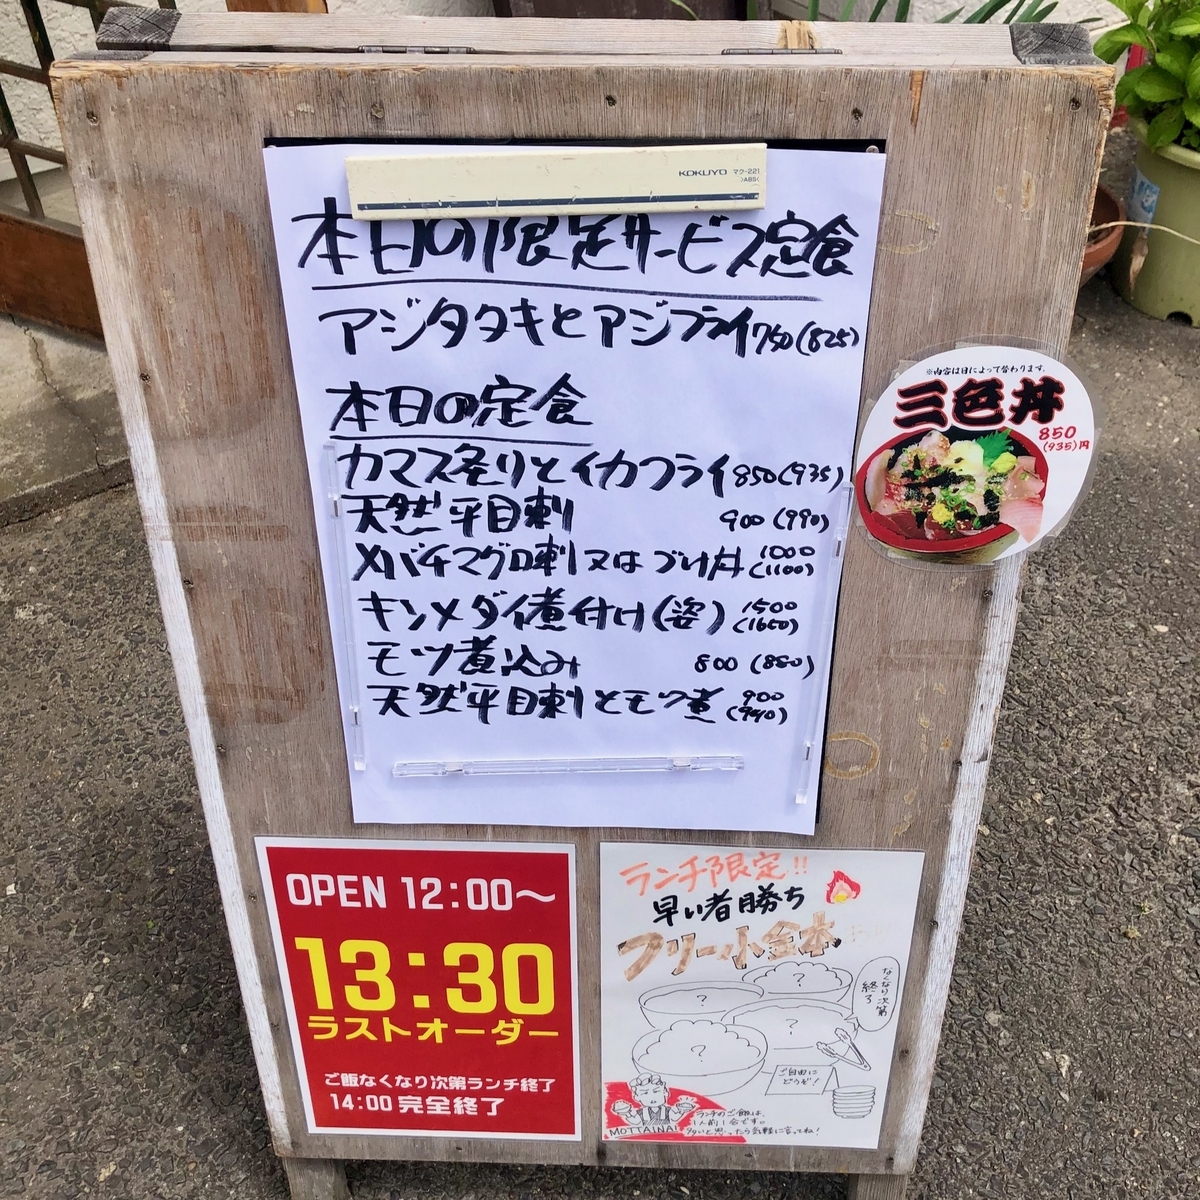 KOKUYO マク-221
>ABS<
本日の限定サービス定食
アジタタキとアジフライ 750(825)
本日の定食
カマス炙りとイカフライ 850(935)
天然平目刺 900(990)
メバチマグロ刺又はづけ丼 1000(1100)
キンメダイ煮付け(姿) 1500(1650)
モツ煮込み 800(880)
天然平目刺とモツ煮 900(990)
※内容は日によって替わります。
三色丼
850
(935)円
OPEN 12:00〜
13:30
ラストオーダー
ご飯なくなり次第ランチ終了
14:00 完全終了
ランチ限定!!
早い者勝ち
フリー小金本
?
?
?
?
なくなり次第
終了
ご自由に
どうぞ!
MOTTAINAI
ランチのご飯は、
1人前1合です。
多いと思ったら気軽に言ってね!